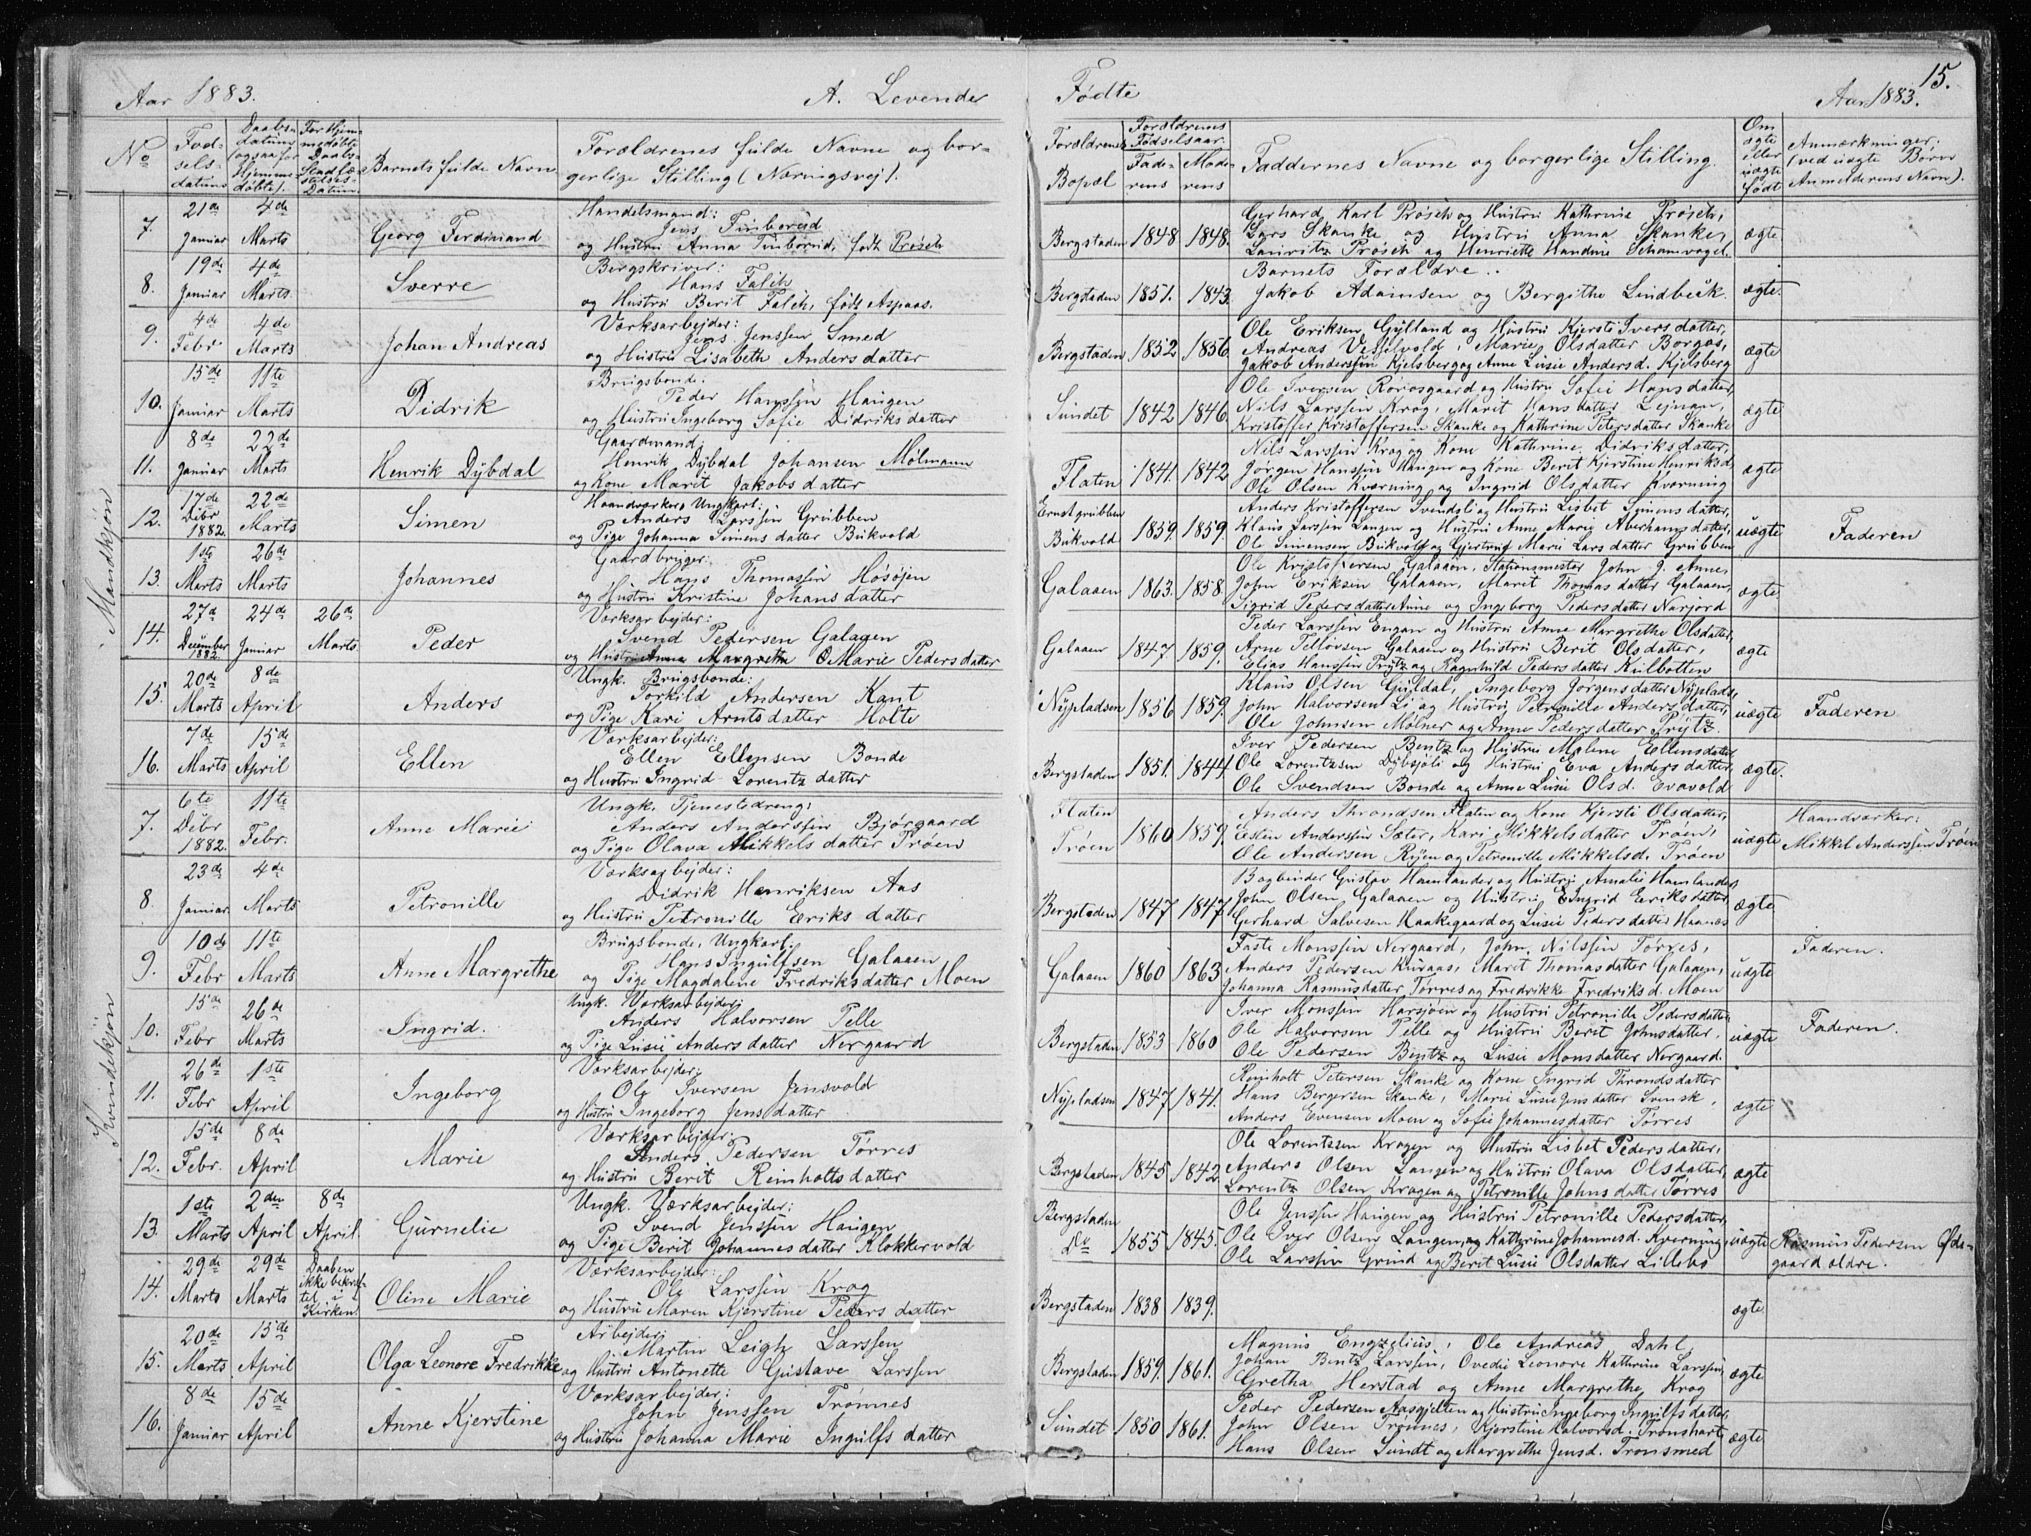 15.
Aar 1883. A. Levende Fødte Aar 1883.
No
Fødselsdatum
Daabsdatum (ogsaa for Hjemmedøbte).
For Hjemmedøbte Daabs Stadfæstelses Datum.
Barnets fulde Navn
Forældrenes fulde Navne og borgerlige Stilling (Næringsvej).
Forældrenes Bopæl
Forældrenes Fødselsaar
Faderens
Moderens
Faddernes Navne og borgerlige Stilling.
Om ægte eller uægte født
Anmærkninger; (ved uægte Børn Anmelderens Navn).
Mandkjøn
7. 21de Januar 4de Marts Georg Ferdinand
Handelsmand: Jens Finborud
og Hustru Anna Finborud, født Prøsch
Bergstaden 1848 1848.
Gerhard Karl Prøsch og Hustru Kathrine Prøsch,
Lars Skanke og Hustru Anna Skanke,
Lauritz Prøsch og Henriette Handine Schamvogel.
ægte
8. 19de Januar 4de Marts. Sverre
Bergskriver: Hans Falch
og Hustru Berit Falch, født Aspaas.
Bergstaden 1851. 1843.
Barnets Forældre..
Jakob Adamsen og Bergithe Lindbeck.
ægte.
9. 4de Febr 4de Marts Johan Andreas
Værksarbejder: Jens Jenssen Smed
og Hustru Lisabeth Andersdatter
Bergstaden 1852 1856
Ole Eriksen Gylland og Hustru Kjersti Iversdatter,
Andreas Vesselvold, Marie Olsdatter Borgos,
Jakob Anderssen Kjelsberg og Anne Lusie Andersd. Kjelsberg
ægte
10. 15de Januar 11te Marts Didrik
Brugsbonde: Peder Hanssen Haugen
og Hustru Ingeborg Sofie Didriksdatter
Sundet 1842 1846
Ole Iversen Rørosgaard og Hustru Sofie Hansdatter,
Nils Larssen Krog, Marit Hansdatter Lejnan,
Kristoffer Kristoffersen Skanke og Kathrine Petersdatter Skanke
ægte
11. 8de Januar 22de Marts Henrik Dybdal
Gaardmand: Henrik Dybdal Johansen Mølmann
og Kone Marit Jakobsdatter
Flaten 1841. 1842
Nils Larssen Krog og Kone Kathrine Didriksdatter,
Jørgen Hanssen Haugen og Kone Berit Kjerstine Henriksd.
Ole Olsen Kværning og Ingrid Olsdatter Kværning
ægte
12. 17de Dcbr 1882. 22de Marts Simen
Haandværker, Ungkarl: Anders Larssen Grubben
og Pige Johanna Simensdatter Bukvold
Ernstgrubben Bukvold 1859. 1859.
Anders Kristoffersen Svendsli og Hustru Lisbet Simensdatter,
Klaus Larssen Langen og Hustru Anne Marie Aberhamsdatter,
Ole Simensen Bukvold og Gjertrud Marie Larsdatter Grubben
uægte Faderen
13. 1ste Marts 26de Marts Johannes
Gaardbruger: Hans Thomassen Høsøjen
og Hustru Kristine Johansdatter
Galaaen 1863. 1858.
Ole Kristoffersen Galaaen, Stationsmester John J. Aune,
John Eriksen Galaaen, Marit Thomasdatter Galaaen,
Sigrid Pedersdatter Aune og Ingeborg Pedersdatter Narjord
ægte
14. 27d December 1882. 24de Januar 26de Marts Peder
Værksarbejder: Svend Pedersen Galaaen
og Hustru Anna Margretha O Marie Pedersdatter
Galaaen 1847 1859.
Peder Larssen Engan og Hustru Anne Margrethe Olsdatter,
Arne Tellovsen Galaaen og Hustru Berit Olsdatter,
Elias Hanssen Prytz og Ragnhild Pedersdatter Kulbotten
ægte
15. 20de Marts 8de April Anders
Ungk. Brugsbonde: Torkild Andersen Kant
og Pige Kari Arntsdatter Holte
Nypladsen 1856 1859.
Klaus Olsen Guldal, Ingeborg Jørgensdatter Nypladds,
John Halvorsen Li og Hustru Petronille Andersdatter,
Ole Johnsen Mølner og Anne Pedersdatter Prytz.
uægte Faderen.
16. 7de Marts 15de April Ellen
Værksarbejder: Ellen Ellensen Bonde
og Hustru Ingrid Lorentzdatter
Bergstaden 1851. 1844.
Iver Pedersen Bentz og Hustru Malene Ellensdatter,
Ole Lorentzsen Dybsjøli og Hustru Eva Andersdatter,
Ole Svendsen Bonde og Anne Lusie Olsd. Evavold
ægte.
Kvindekjøn
7. 6te Dcbr 1882. 11te Febr. Anne Marie
Ungk. Tjenestedreng: Anders Anderssen Bjørgaard
og Pige Olava Mikkelsdatter Trøen
Flaten Trøen 1860 1859.
Anders Throndsen Flaten og Kone Kjersti Olsdatter,
Esten Anderssen Sæter, Kari Mikkelsdatter Trøen,
Ole Andersen Ryen og Petronille Mikkelsd. Trøen
uægte Haandværker: Mikkel Anderssen Trøen
8. 23de Januar. 4de Marts. Petronille
Værksarbejder: Didrik Henriksen Aas
og Hustru Petronille Eriksdatter
Bergstaden 1847 1847
Bogbinder Gustav Hamlander og Hustru Amalie Hamlander,
John Olsen Galaaen og Hustru Ingrid Eriksdatter,
Gerhard Salvesen Haakegaard og Lusie Pedersdatter Haanæs
ægte
9. 10de Febr 11te Marts Anne Margrethe
Brugsbonde, Ungkarl: Hans Ingulfsen Galaaen
og Pige Magdalene Fredriksdatter Moen
Galaaen 1860 1863
Faste Monssen Nergaard, John Nilssen Torres,
Anders Pedersen Kuraas, Marit Thomasdatter Galaaen,
Johanna Rasmusdatter Torres og Fredrikke Fredriksd. Moen
uægte Faderen.
10. 15de Febr 26de Marts Ingrid.
Ungk. Værksarbejder: Anders Halvorsen Pelle
og Pige Lusie Andersdatter Nergaard
Bergstaden 1853 1860
Iver Monssen Harsjøen og Hustru Petronille Pedersdatter,
Ole Halvorsen Pelle og Hustru Berit Johnsdatter,
Ole Pedersen Bentz og Lusie Monsdatter Nergaard.
uægte Faderen.
11. 26de Febr 1ste April Ingeborg
Værksarbejder: Ole Iversen Jensvold
og Hustru Ingeborg Jensdatter
Nypladsen 1847 1841.
Reinholt Petersen Skanke og Kone Ingrid Throndsdatter
Hans Bergersen Skanke, Marie Lusie Jensdatter Svensk,
Anders Evensen Moen og Sofie Johannesdatter Torres
ægte
12. 15de Febr. 8de April Marie
Værksarbejder: Anders Pedersen Tørres
og Hustru Berit Reinholtsdatter
Bergstaden 1845 1842
Ole Lorentzsen Kragen og Hustru Lisbet Pedersdatter,
Anders Olsen Langen og Hustru Olava Olsdatter,
Lorentz Olsen Kragen og Petronille Johnsdatter Tørres
ægte
13. 1ste Marts 2den April 8de April. Gurnelie
Ungk. Værksarbejder: Svend Jenssen Haugen
og Pige Berit Johannesdatter Klokkervold
Bergstaden do 1855 1845.
Ole Jenssen Haugen og Hustru Petronille Pedersdatter,
Ole Iver Olsen Langen, og Kathrine Johannesd. Kverning,
Ole Larssen Grind og Berit Lusie Olsdatter Lillebo
uægte Rasmus Pedersen Ødegaard ældre.
14. 29de Marts 29de Marts Daaben ikke bekræftet i Kirken Oline Marie
Værksarbejder: Ole Larssen Krog
og Hustru Maren Kjerstine Pedersdatter
Bergstaden 1838 1839.
ægte
15. 20de Marts 15de April Olga Leonore Fredrikke
Arbejder: Martin Leigh Larssen
og Hustru Antonette Gustave Larssen
Bergstaden 1859. 1861.
Magnus Engzelius, Ole Andreas Dahl,
Johan Bentz Larssen, Ovedie Leonore Kathrine Larssen,
Gretha Herstad og Anne Margrethe Krog
ægte
16. 8de Januar 15de April Anne Kjerstine
Værksarbejder: John Jenssen Trønnes
og Hustru Johanna Marie Ingulfsdatter
Sundet 1850 1861.
Peder Pedersen Aasgjelten og Hustru Ingeborg Ingulfsdatter,
John Olsen Trønnes, Kjerstine Halvorsd. Tronshart,
Hans Olsen Sundt og Margrethe Jensd. Tronsmed
ægte